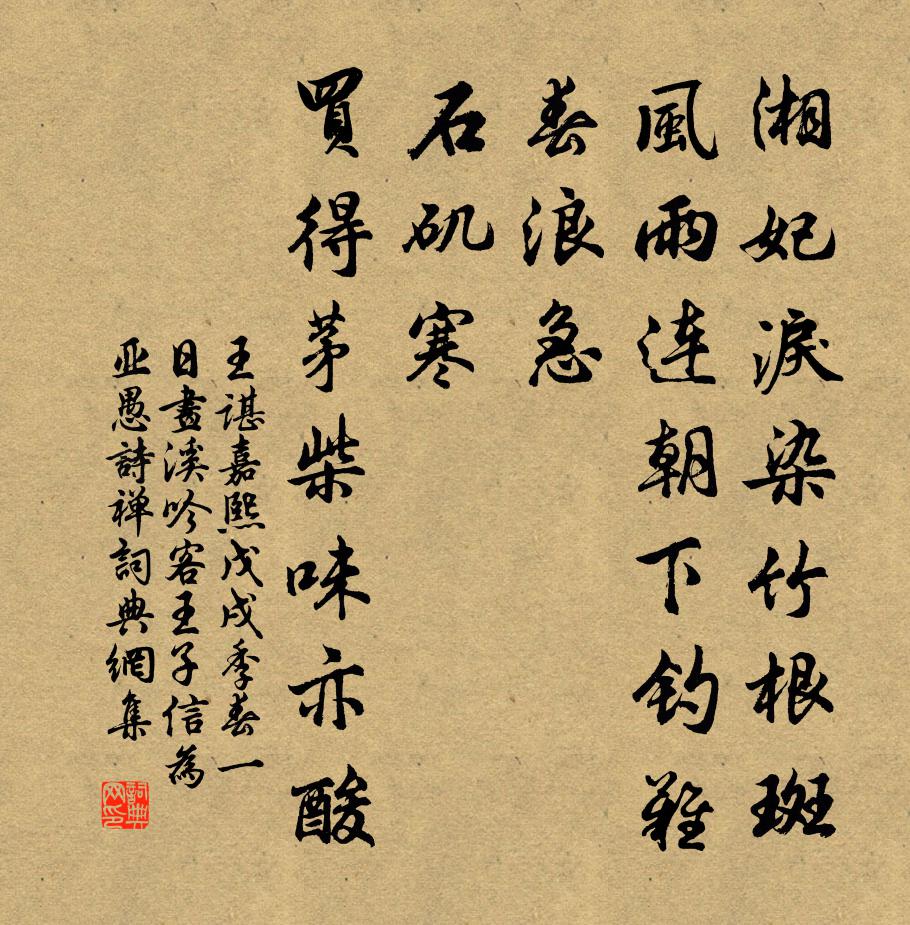 湘妃淚染竹根斑
風雨連朝下釣難
春浪急
石矶寒
買得茅柴味亦酸
王諶嘉熙戊戌季春一
日畫溪吟客王子信為
亚愚詩禅詞典網集
詞典网印